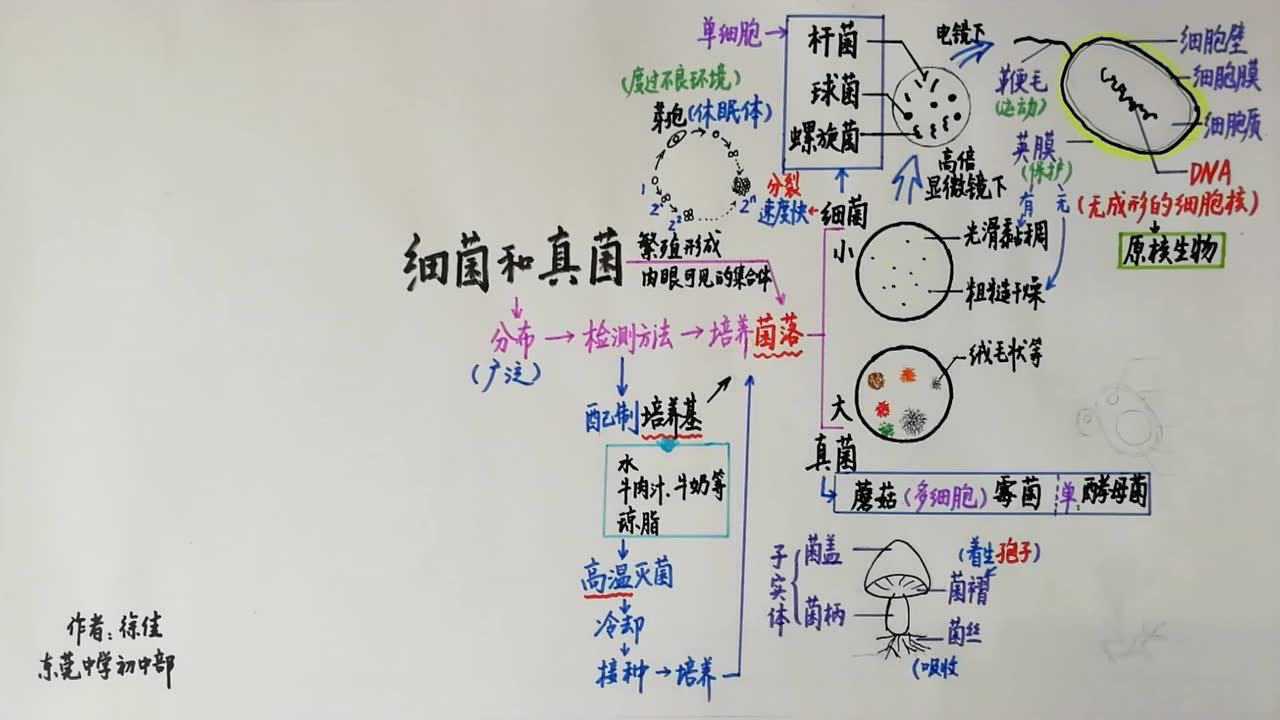 单细胞
杆菌
球菌
螺旋菌
电镜下
高倍
显微镜下
鞭毛
(运动)
荚膜
(保护)
有 无
细胞壁
细胞膜
细胞质
DNA
(无成形的细胞核)
原核生物
(度过不良环境)
芽孢(休眠体)
1
2
2²
2ⁿ
分裂
速度快
细菌
小
光滑黏稠
粗糙干燥
细菌和真菌
繁殖形成
肉眼可见的集合体
分布
(广泛)
检测方法
培养菌落
绒毛状等
大
真菌
蘑菇(多细胞)霉菌 单:酵母菌
配制培养基
水
牛肉汁、牛奶等
琼脂
高温灭菌
冷却
接种
培养
子实体
菌盖
菌柄
(着生孢子)
菌褶
菌丝
(吸收
作者:徐佳
东莞中学初中部